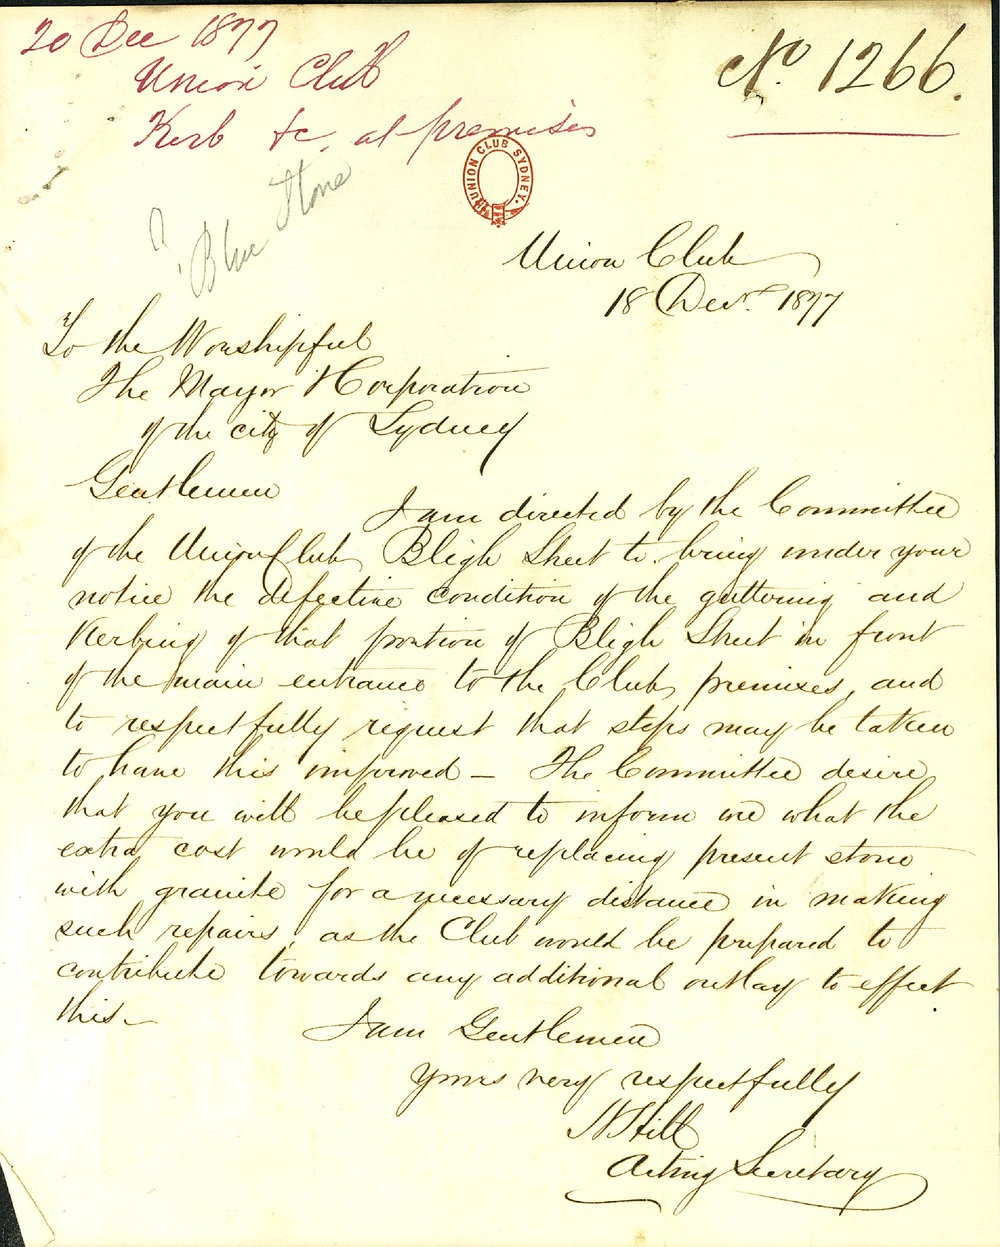 20 Dec 1877
No 1266.
Union Club
Kerb &c. at premises
UNION CLUB SYDNEY.
? Blue Stone
Union Club
18 Decr. 1877
To the Worshipful
The Mayor & Corporation
of the city of Sydney
Gentlemen
I am directed by the Committee
of the Union Club, Bligh Street to bring under your
notice the defective condition of the guttering and
Kerbing of that portion of Bligh Street in front
of the main entrance to the Club premises, and
to respectfully request that steps may be taken
to have this improved – The Committee desire
that you will be pleased to inform me what the
extra cost would be of replacing present stone
with granite for a necessary distance in making
such repairs, as the Club would be prepared to
contribute towards any additional outlay to effect
this –
I am Gentlemen
yours very respectfully
Hill
Acting Secretary